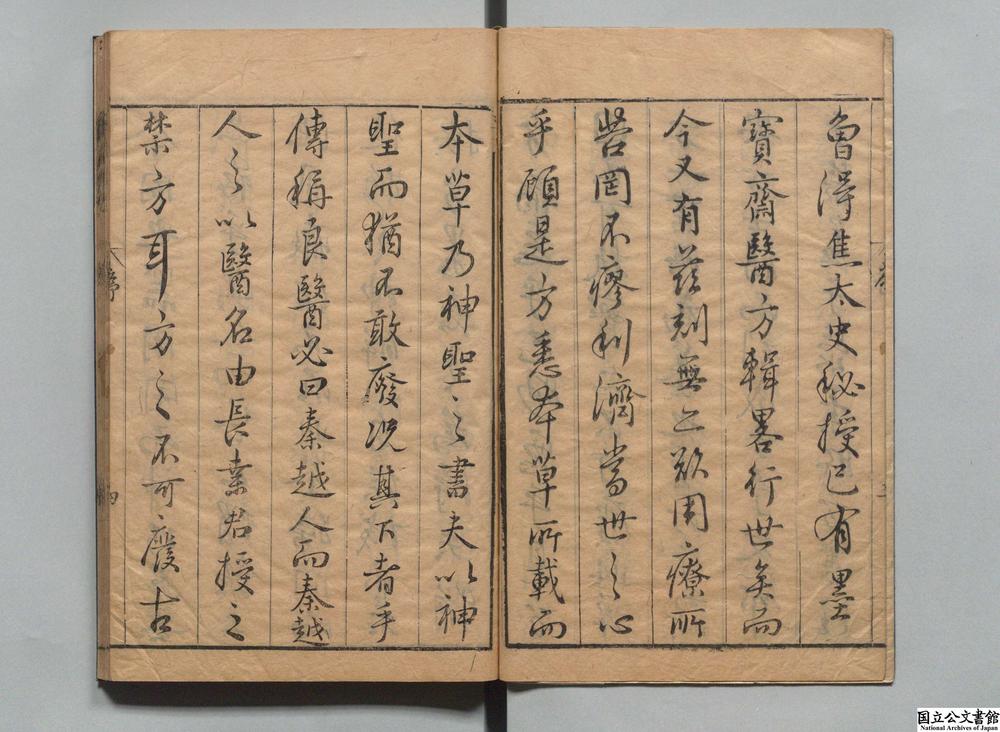 魯得焦太史秘授已有墨
寶齋醫方輯畧行世矣而
今又有茲刻無乃欲周療所
苦罔不瘳利濟當世之心
乎顧是方悉本草所載而
本草乃神聖之書夫以神
聖而猶不敢廢况其下者乎
傳稱良醫必曰秦越人而秦越
人之以醫名由長桑君授之
禁方耳方之不可廢古
序
四
国立公文書館
National Archives of Japan